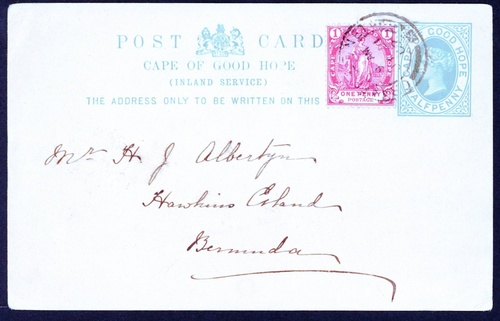 POST CARD
CAPE OF GOOD HOPE
(INLAND SERVICE)
THE ADDRESS ONLY TO BE WRITTEN ON THIS
1 1
CAPE HOPE
ONE PENNY
POSTAGE
GOOD HOPE
HALFPENNY
Mr H J Albertyn
Hawkins Island
Bermuda